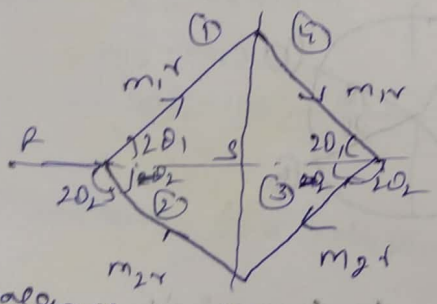 ① ④
m₁r m₁r
P 2θ₁ S 2θ₁
2θ₂ θ₂ ② ③ 2θ₂ 2θ₂
m₂r m₂r